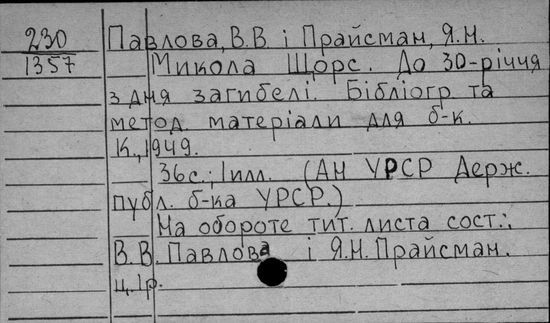 230 Павлова, В.В. і Прайсман, Я.Н.
1357 Микола Щорс. До 30-річчя
з дня загибелі. Бібліогр та
метод. матеріали для б-к.
К., 1949.
36с.; 1илл. (АН УРСР Держ.
публ. б-ка УРСР.)
На обороте тит. листа сост.:
В.В. Павлова і Я.Н. Прайсман.
ц. 1р.